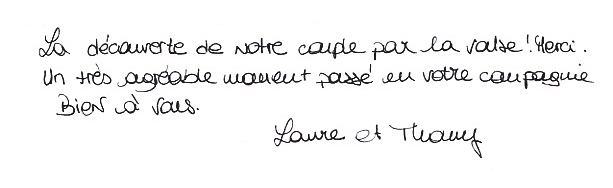 La découverte de notre couple par la valse ! Merci.
Un très agréable moment passé en votre compagnie
Bien à vous.
Laure et Thany